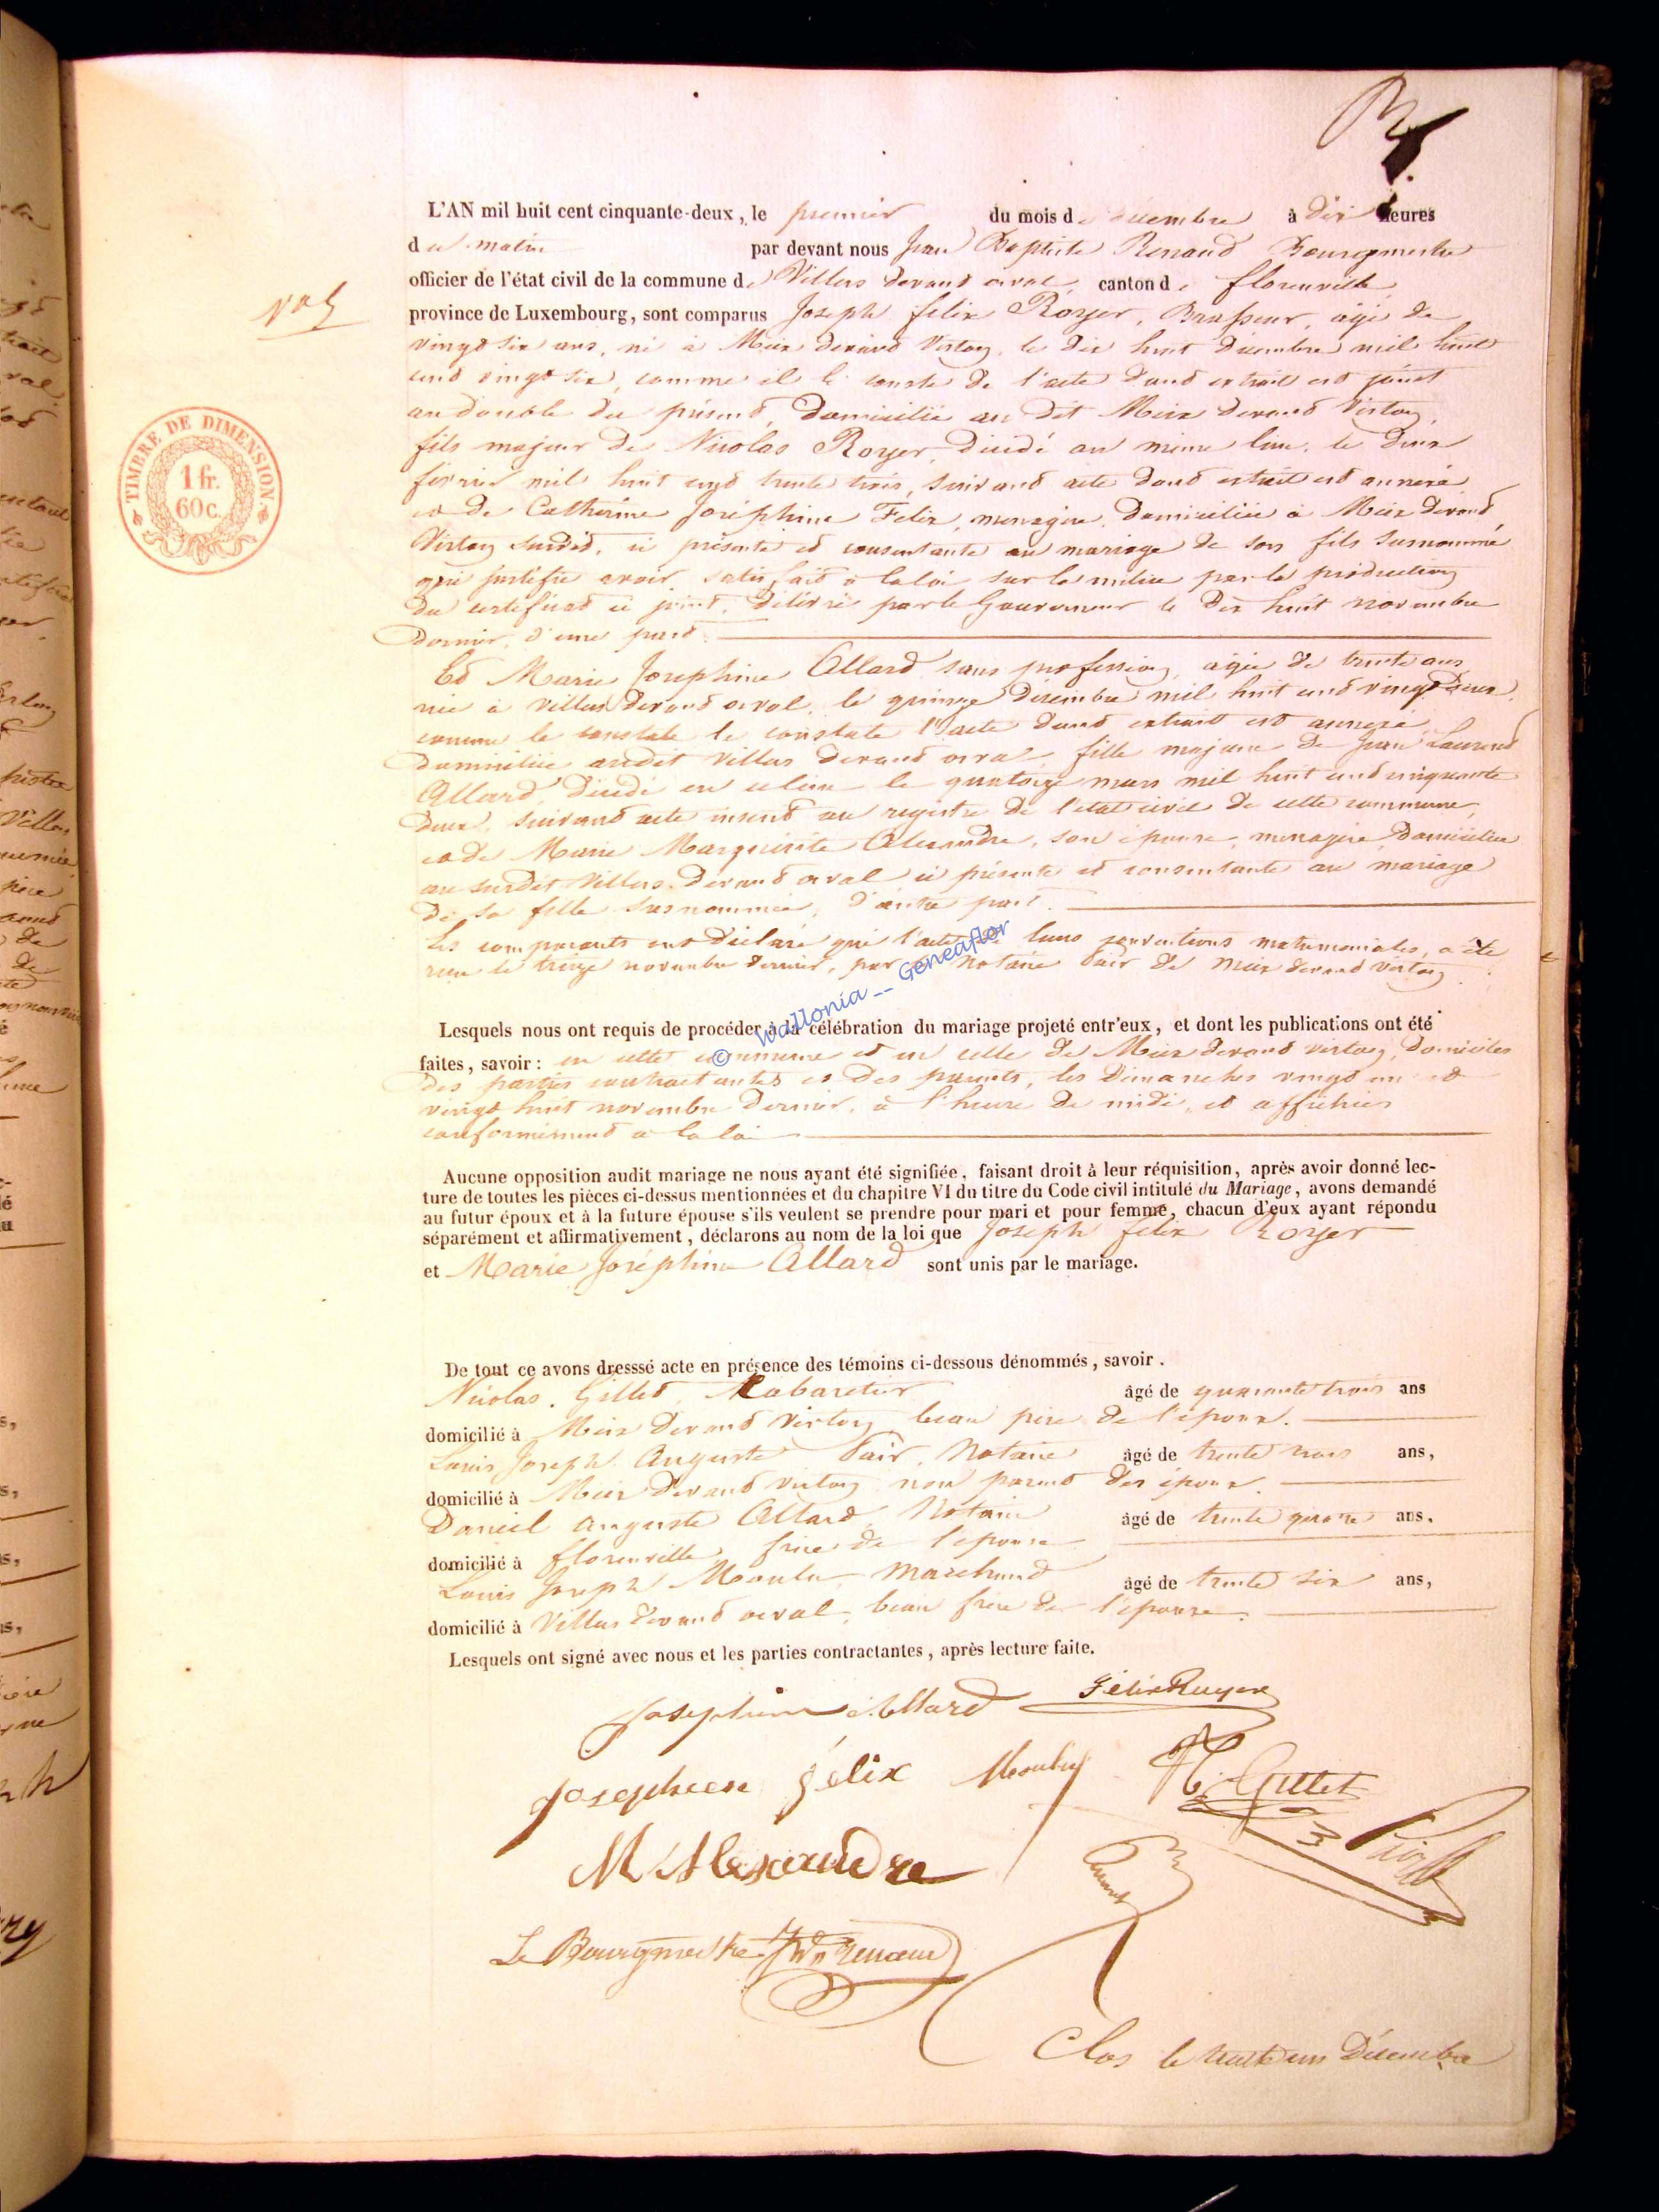 L'AN mil huit cent cinquante-deux, le premier du mois de décembre à dix heures
du matin par devant nous Jean Baptiste Renaud Bourgmestre
officier de l'état civil de la commune de Villers devant orval, canton de florenville,
province de Luxembourg, sont comparus Joseph felix Royer, Brasseur, âgé de
vingt six ans, né à Meix devant Virton, le dix huit decembre mil huit
cent vingt six, comme il le conste de l'acte dont extrait est joint
au double du présent, domicilié au dit Meix devant Virton,
fils majeur de Nicolas Royer, décédé au même lieu, le deux
février mil huit cent trente trois, suivant acte dont extrait est annexé
et de Catherine Joséphine Felix, menagère, domiciliée à Meix devant
Virton susdit, ci présente et consentante au mariage de son fils susnommé
qui justifie avoir satisfait à la loi sur la milice par la production
du certificat ci joint, délivré par le Gouverneur le dix huit novembre
dernier, d'une part.
Et Marie Josephine Allard sans profession, agée de trente ans
née à villers devant orval, le quinze décembre mil huit cent vingt deux,
comme le constate le constate l'acte dont extrait est annexé
domiciliée audit Villers devant orval, fille majeure de Jean Laurent
Allard, décédé en ce lieu le quatorze mars mil huit cent cinquante
deux, suivant acte inscrit au registre de l'etat civil de cette commune,
et de Marie Marguerite Alexandre, son épouse, menagère, domiciliée
au susdit Villers devant orval ci présente et consentante au mariage
de sa fille susnommée, d'autre part.
Les comparants ont déclaré que l'acte de leurs conventions matrimoniales, a été
reçu le treize novembre dernier, par notaire de Meix devant virton.
© Wallonia -- Geneaflor
Lesquels nous ont requis de procéder à la célébration du mariage projeté entr'eux, et dont les publications ont été
faites, savoir: en cette commune et en celle de Meix devant virton, domiciles
des parties contractantes et des parents, les dimanches vingt un et
vingt huit novembre dernier, à l'heure de midi, et affichées
conformément a la loi
Aucune opposition audit mariage ne nous ayant été signifiée, faisant droit à leur réquisition, après avoir donné lec-
ture de toutes les pièces ci-dessus mentionnées et du chapitre VI du titre du Code civil intitulé du Mariage, avons demandé
au futur époux et à la future épouse s'ils veulent se prendre pour mari et pour femme, chacun d'eux ayant répondu
séparément et affirmativement, déclarons au nom de la loi que Joseph felix Royer
et Marie Joséphine Allard sont unis par le mariage.
De tout ce avons dresssé acte en présence des témoins ci-dessous dénommés, savoir.
Nicolas Gillet, Cabaretier âgé de quarante trois ans
domicilié à Meix devant virton beau père de l'époux.
Louis Joseph Auguste Notaire âgé de trente trois ans,
domicilié à Meix devant virton non parent des époux.
Daniel Auguste Allard, Notaire âgé de trente quatre ans.
domicilié à florenville, frère de l'épouse
Louis Joseph Marchand âgé de trente six ans,
domicilié à Villers devant orval, beau frère de l'épouse.
Lesquels ont signé avec nous et les parties contractantes, après lecture faite.
Josephine Allard Félix Royer
Josephine félix N. Gillet
M Alexandre
Le Bourgmestre
Clos le trente un Décembre
TIMBRE DE DIMENSION
1 fr.
60 c.